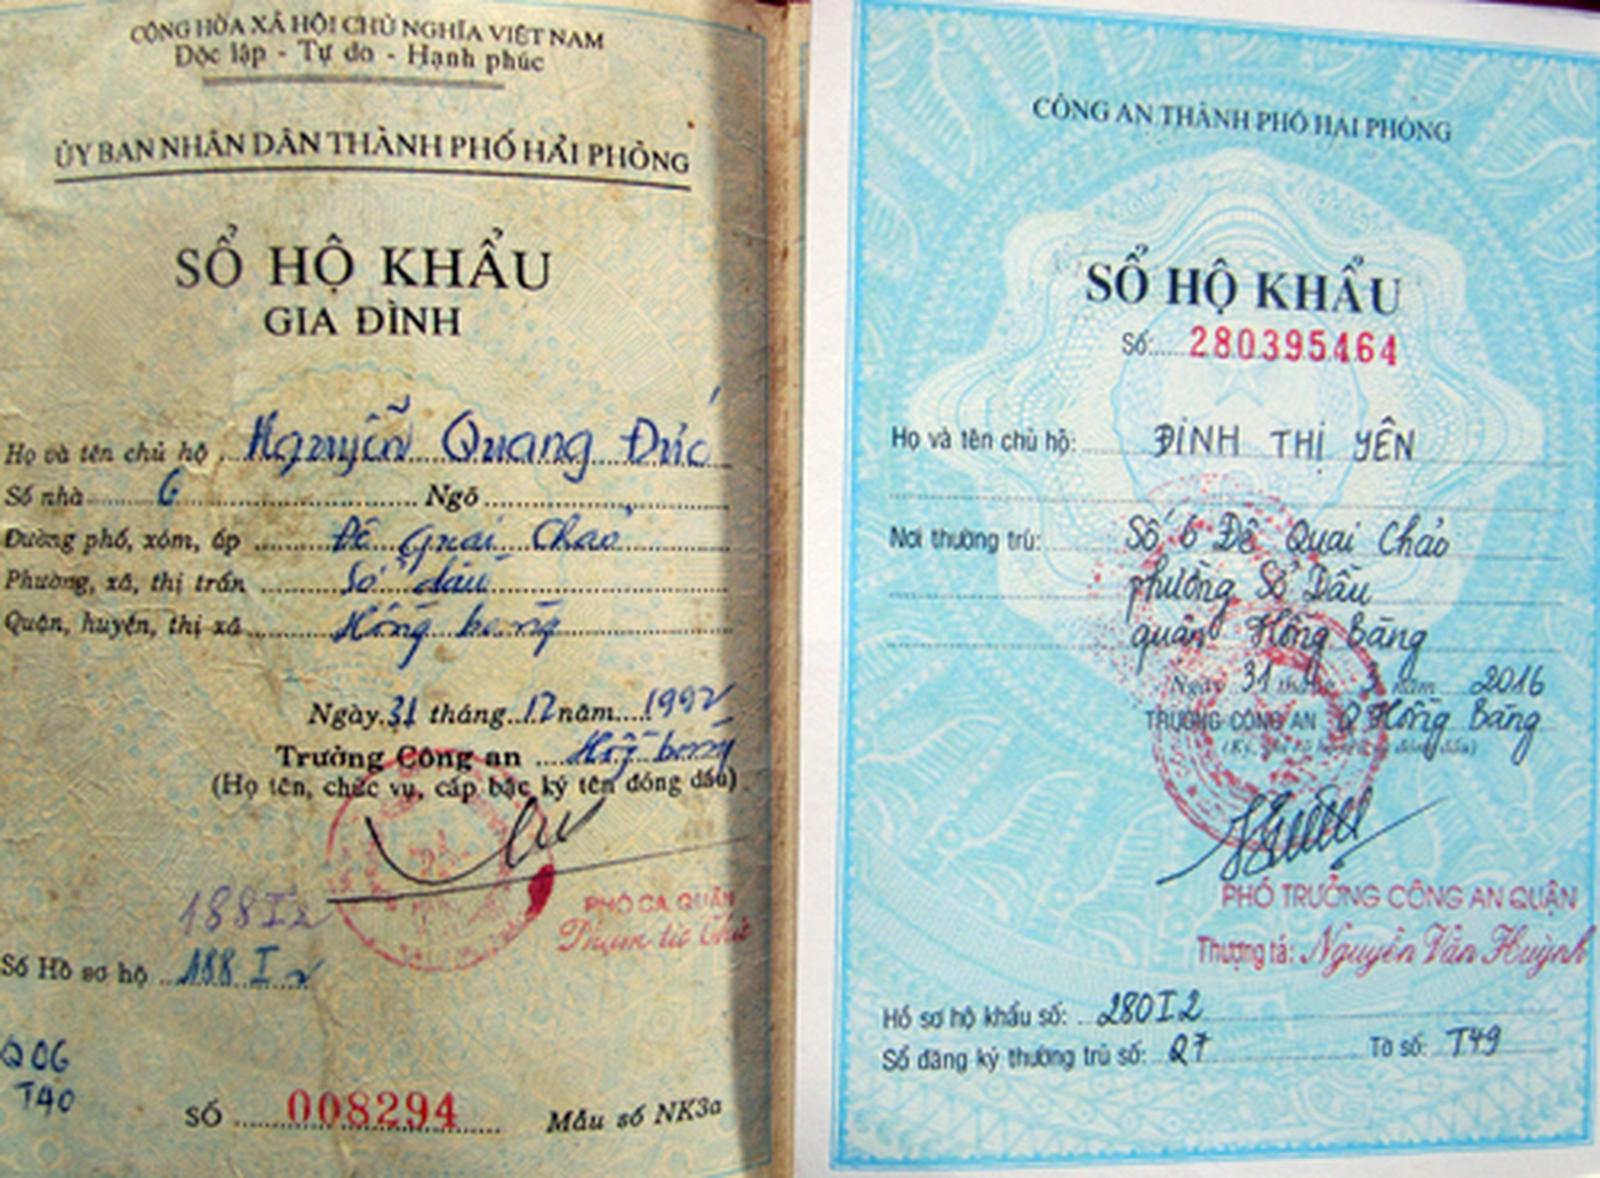 CỘNG HÒA XÃ HỘI CHỦ NGHĨA VIỆT NAM
Độc lập - Tự do - Hạnh phúc
ỦY BAN NHÂN DÂN THÀNH PHỐ HẢI PHÒNG
SỔ HỘ KHẨU
GIA ĐÌNH
Họ và tên chủ hộ Nguyễn Quang Đức
Số nhà 6 Ngõ
Đường phố, xóm, ấp Đê Quai Chảo
Phường, xã, thị trấn Sở dầu
Quận, huyện, thị xã Hồng bàng
Ngày 31 tháng 12 năm 1992
Trưởng Công an Hồng bàng
(Họ tên, chức vụ, cấp bậc ký tên đóng dấu)
188I2
PHÓ CA QUẬN
Số Hồ sơ hộ 188 I2
Q06
T40
SỐ 008294 Mẫu số NK3a
CÔNG AN THÀNH PHỐ HẢI PHÒNG
SỔ HỘ KHẨU
Số: 280395464
Họ và tên chủ hộ: ĐINH THỊ YÊN
Nơi thường trú: Số 6 Đê Quai Chảo
phường Sở Dầu
quận Hồng Bàng
Ngày 31 tháng 3 năm 2016
TRƯỞNG CÔNG AN Q Hồng Bàng
PHÓ TRƯỞNG CÔNG AN QUẬN
Thượng tá: Nguyễn Văn Huỳnh
Hồ sơ hộ khẩu số: 280I2
Sổ đăng ký thường trú số: Q7 Tờ số: T49